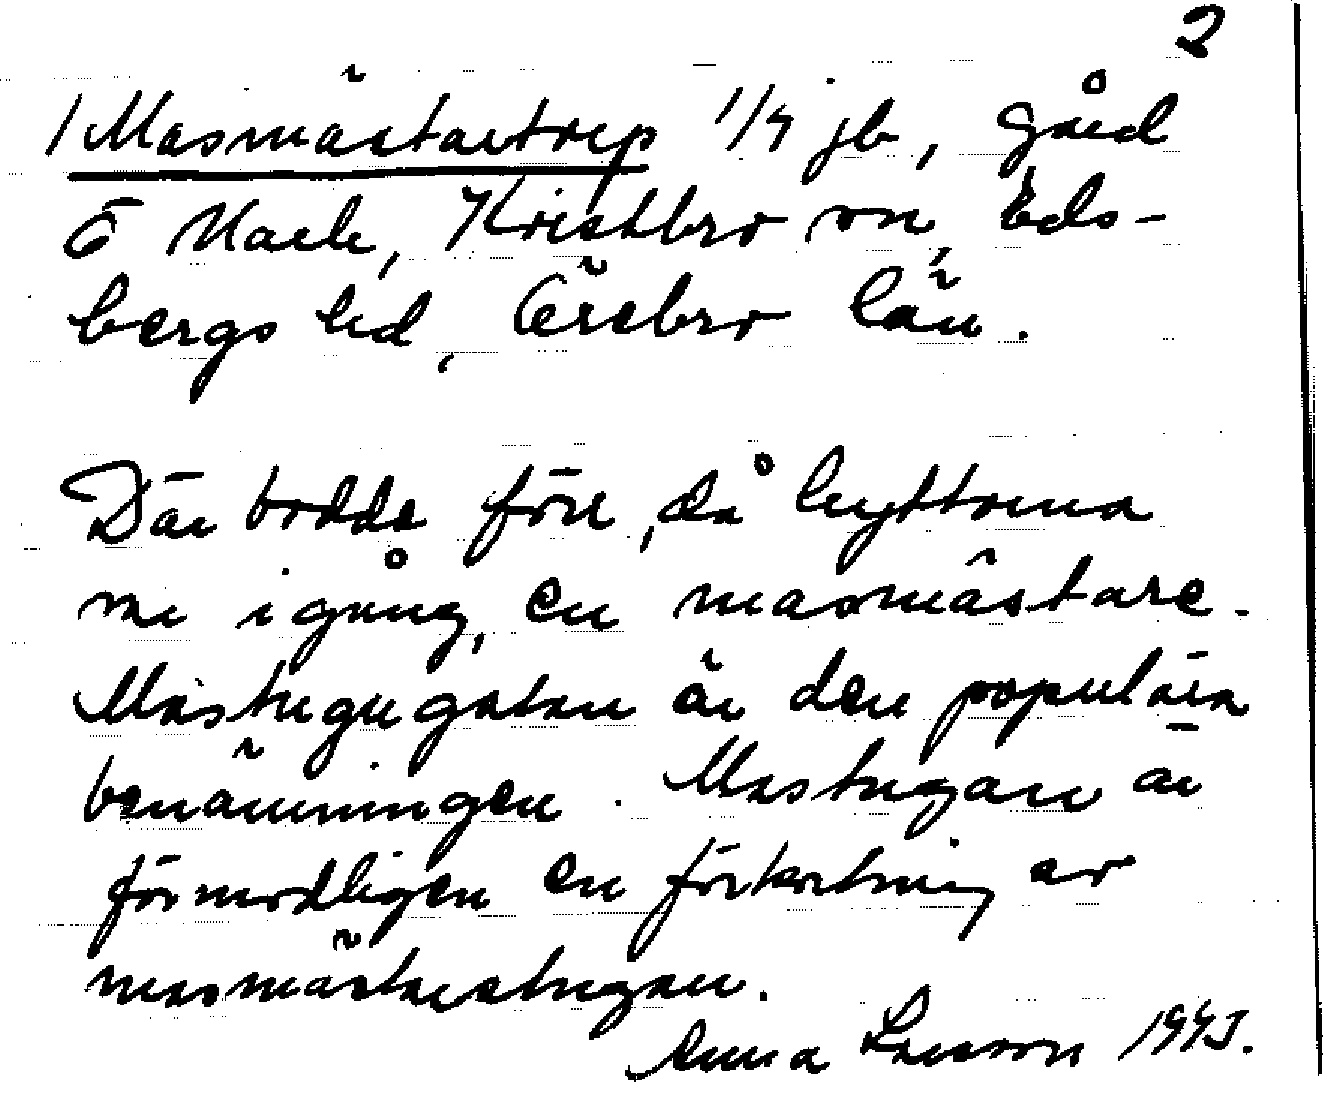 2
/ Masmästartorp 1/4 jb, gård
Ö Mark, Kristbro sn, Eds-
bergs hd, Örebro län.
Där bodde förr, då hyttorna
var igång, en masmästare.
Mastugugatan är den populära
benämningen. Mastugan är
förmodligen en förkortning av
masmästarestugan.
Anna Larsson 1945.